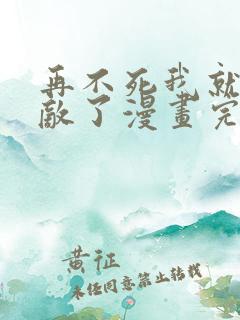 再不死我就
敵了漫畫完
黄征
未经同意禁止转载